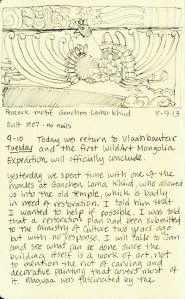 Peacock motif. Ganchen Lama Khiid 8-9-13
Built 1907 - no nails
9-10 Today we return to Ulaanbaatar
Tuesday and the first WildArt Mongolia
Expedition will officially conclude.
Yesterday we spent time with one of the
monks at Ganchen Lama Khiid, who allowed us
into the old temple, which is badly
in need of restoration. I told him that
I wanted to help if possible. I was told
that a restoration plan had been submitted
to the Ministry of Culture two years ago
but with no response. I will talk to Dan
and see what can be done since the
building itself is a work of art, not
to mention the riot of carving and
decorative painting that covers most of
it. Magvaa was fascinated by the